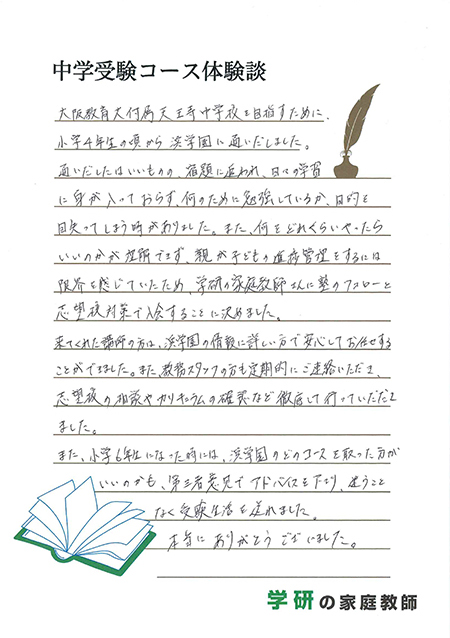 中学受験コース体験談
大阪教育大付属天王寺中学校を目指すために、
小学4年生の頃から浜学園に通いだしました。
通いだしたはいいものの、宿題に追われ、日々の学習
に身が入っておらず、何のために勉強しているか、目的を
見失ってしまう時がありました。また、何をどれくらいやったら
いいのかが理解できず、親が子どもの進捗管理をするには
限界を感じていたため、学研の家庭教師さんに塾のフォローと
志望校対策で入会することに決めました。
来てくれた講師の方は、浜学園の情報に詳しい方で安心してお任せする
ことができました。また、教務スタッフの方も定期的にご連絡いただき、
志望校の相談やカリキュラムの確認など徹底して行っていただき
ました。
また、小学6年生になった時には、浜学園のどのコースを取った方が
いいのかも、第三者意見でアドバイスを下さり、迷うこと
なく受験生活を送れました。
本当にありがとうございました。
学研の家庭教師